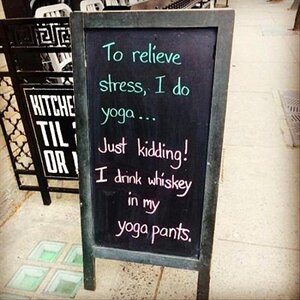 To relieve
stress, I do
yoga...
Just kidding!
I drink whiskey
in my
yoga pants.
TIL
OR